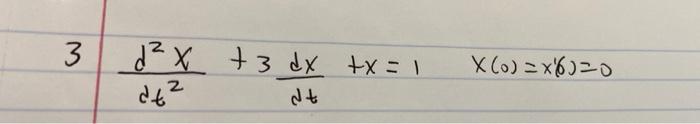 3 d²x/dt² + 3 dx/dt + x = 1 x(0) = x'(0) = 0